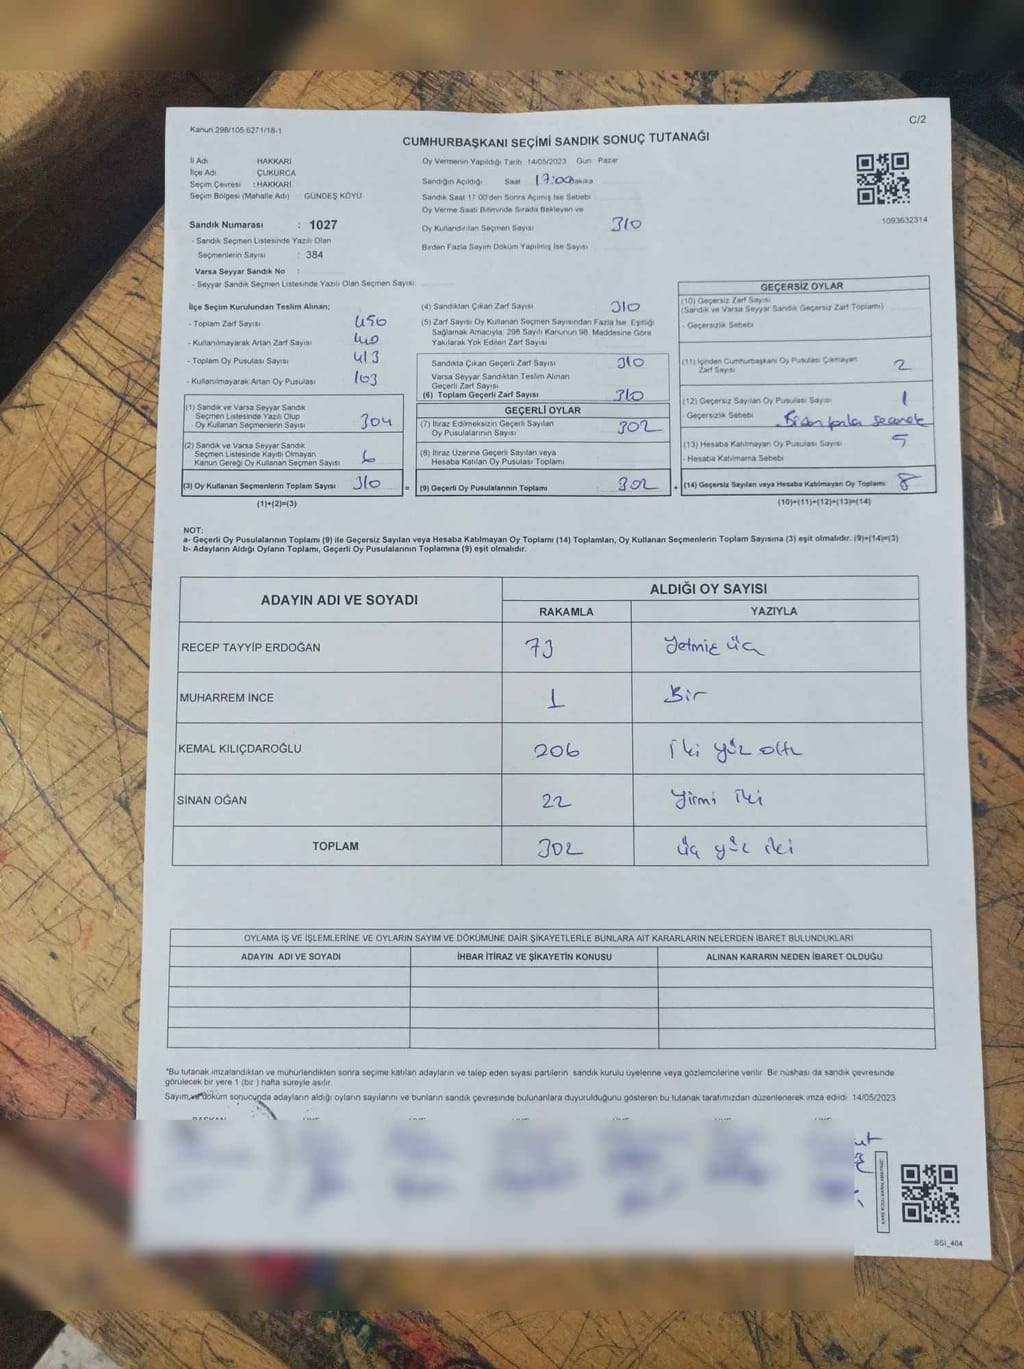 Kanun.298/105,6271/18-1
C/2
CUMHURBAŞKANI SEÇİMİ SANDIK SONUÇ TUTANAĞI
İl Adı HAKKARİ
İlçe Adı ÇUKURCA
Seçim Çevresi : HAKKARİ
Seçim Bölgesi (Mahalle Adı) GÜNDEŞ KÖYÜ
Oy Vermenin Yapıldığı Tarih 14/05/2023 Gün Pazar
Sandığın Açıldığı Saat 17:00 Dakika
Sandık Saat 17 00'den Sonra Açımış İse Sebebi
Oy Verme Saati Bitiminde Sırada Bekleyen ve
Oy Kullandırılan Seçmen Sayısı 310
Birden Fazla Sayım Döküm Yapılmış İse Sayısı
1093632314
Sandık Numarası : 1027
- Sandık Seçmen Listesinde Yazılı Olan
Seçmenlerin Sayısı : 384
Varsa Seyyar Sandık No :
- Seyyar Sandık Seçmen Listesinde Yazılı Olan Seçmen Sayısı:
İlçe Seçim Kurulundan Teslim Alınan;
- Toplam Zarf Sayısı 450
- Kullanılmayarak Artan Zarf Sayısı 140
- Toplam Oy Pusulası Sayısı 413
- Kullanılmayarak Artan Oy Pusulası 103
(1) Sandık ve Varsa Seyyar Sandık
Seçmen Listesinde Yazılı Olup
Oy Kullanan Seçmenlerin Sayısı 304
(2) Sandık ve Varsa Seyyar Sandık
Seçmen Listesinde Kayıtlı Olmayan
Kanun Gereği Oy Kullanan Seçmen Sayısı 6
(3) Oy Kullanan Seçmenlerin Toplam Sayısı 310 =
(1)+(2)=(3)
(4) Sandıktan Çıkan Zarf Sayısı 310
(5) Zarf Sayısı Oy Kullanan Seçmen Sayısından Fazla İse, Eşitliği
Sağlamak Amacıyla 298 Sayılı Kanunun 98. Maddesine Göre
Yakılarak Yok Edilen Zarf Sayısı
Sandıkta Çıkan Geçerli Zarf Sayısı 310
Varsa Seyyar Sandıktan Teslim Alınan
Geçerli Zarf Sayısı
(6) Toplam Geçerli Zarf Sayısı 310
GEÇERLİ OYLAR
(7) İtiraz Edilmeksizin Geçerli Sayılan
Oy Pusulalarının Sayısı 302
(8) İtiraz Üzerine Geçerli Sayılan veya
Hesaba Katılan Oy Pusulası Toplamı
(9) Geçerli Oy Pusulalarının Toplamı 302 +
GEÇERSİZ OYLAR
(10) Geçersiz Zarf Sayısı
(Sandık ve Varsa Seyyar Sandık Geçersiz Zarf Toplamı)
- Geçersizlik Sebebi
(11) İçinden Cumhurbaşkanı Oy Pusulası Çıkmayan
Zarf Sayısı 2
(12) Geçersiz Sayılan Oy Pusulası Sayısı 1
- Geçersizlik Sebebi Birden fazla secenek
(13) Hesaba Katılmayan Oy Pusulası Sayısı 5
- Hesaba Katılmama Sebebi
(14) Geçersiz Sayılan veya Hesaba Katılmayan Oy Toplamı 8
(10)+(11)+(12)+(13)=(14)
NOT:
a- Geçerli Oy Pusulalarının Toplamı (9) ile Geçersiz Sayılan veya Hesaba Katılmayan Oy Toplamı (14) Toplamları, Oy Kullanan Seçmenlerin Toplam Sayısına (3) eşit olmalıdır. (9)+(14)=(3)
b- Adayların Aldığı Oyların Toplamı, Geçerli Oy Pusulalarının Toplamına (9) eşit olmalıdır.
ADAYIN ADI VE SOYADI ALDIĞI OY SAYISI
RAKAMLA YAZIYLA
RECEP TAYYİP ERDOĞAN 73 Yetmiş üç
MUHARREM İNCE 1 Bir
KEMAL KILIÇDAROĞLU 206 İki yüz altı
SİNAN OĞAN 22 Yirmi iki
TOPLAM 302 üç yüz iki
OYLAMA İŞ VE İŞLEMLERİNE VE OYLARIN SAYIM VE DÖKÜMÜNE DAİR ŞİKAYETLERLE BUNLARA AİT KARARLARIN NELERDEN İBARET BULUNDUKLARI
ADAYIN ADI VE SOYADI İHBAR İTİRAZ VE ŞİKAYETİN KONUSU ALINAN KARARIN NEDEN İBARET OLDUĞU
*Bu tutanak imzalandıktan ve mühürlendikten sonra seçime katılan adayların ve talep eden siyasi partilerin sandık kurulu üyelerine veya gözlemcilerine verilir. Bir nüshası da sandık çevresinde
görülecek bir yere 1 (bir ) hafta süreyle asılır.
Sayım ve döküm sonucunda adayların aldığı oyların sayılarını ve bunların sandık çevresinde bulunanlara duyurulduğunu gösteren bu tutanak tarafımızdan düzenlenerek imza edildi 14/05/2023
SSI_404